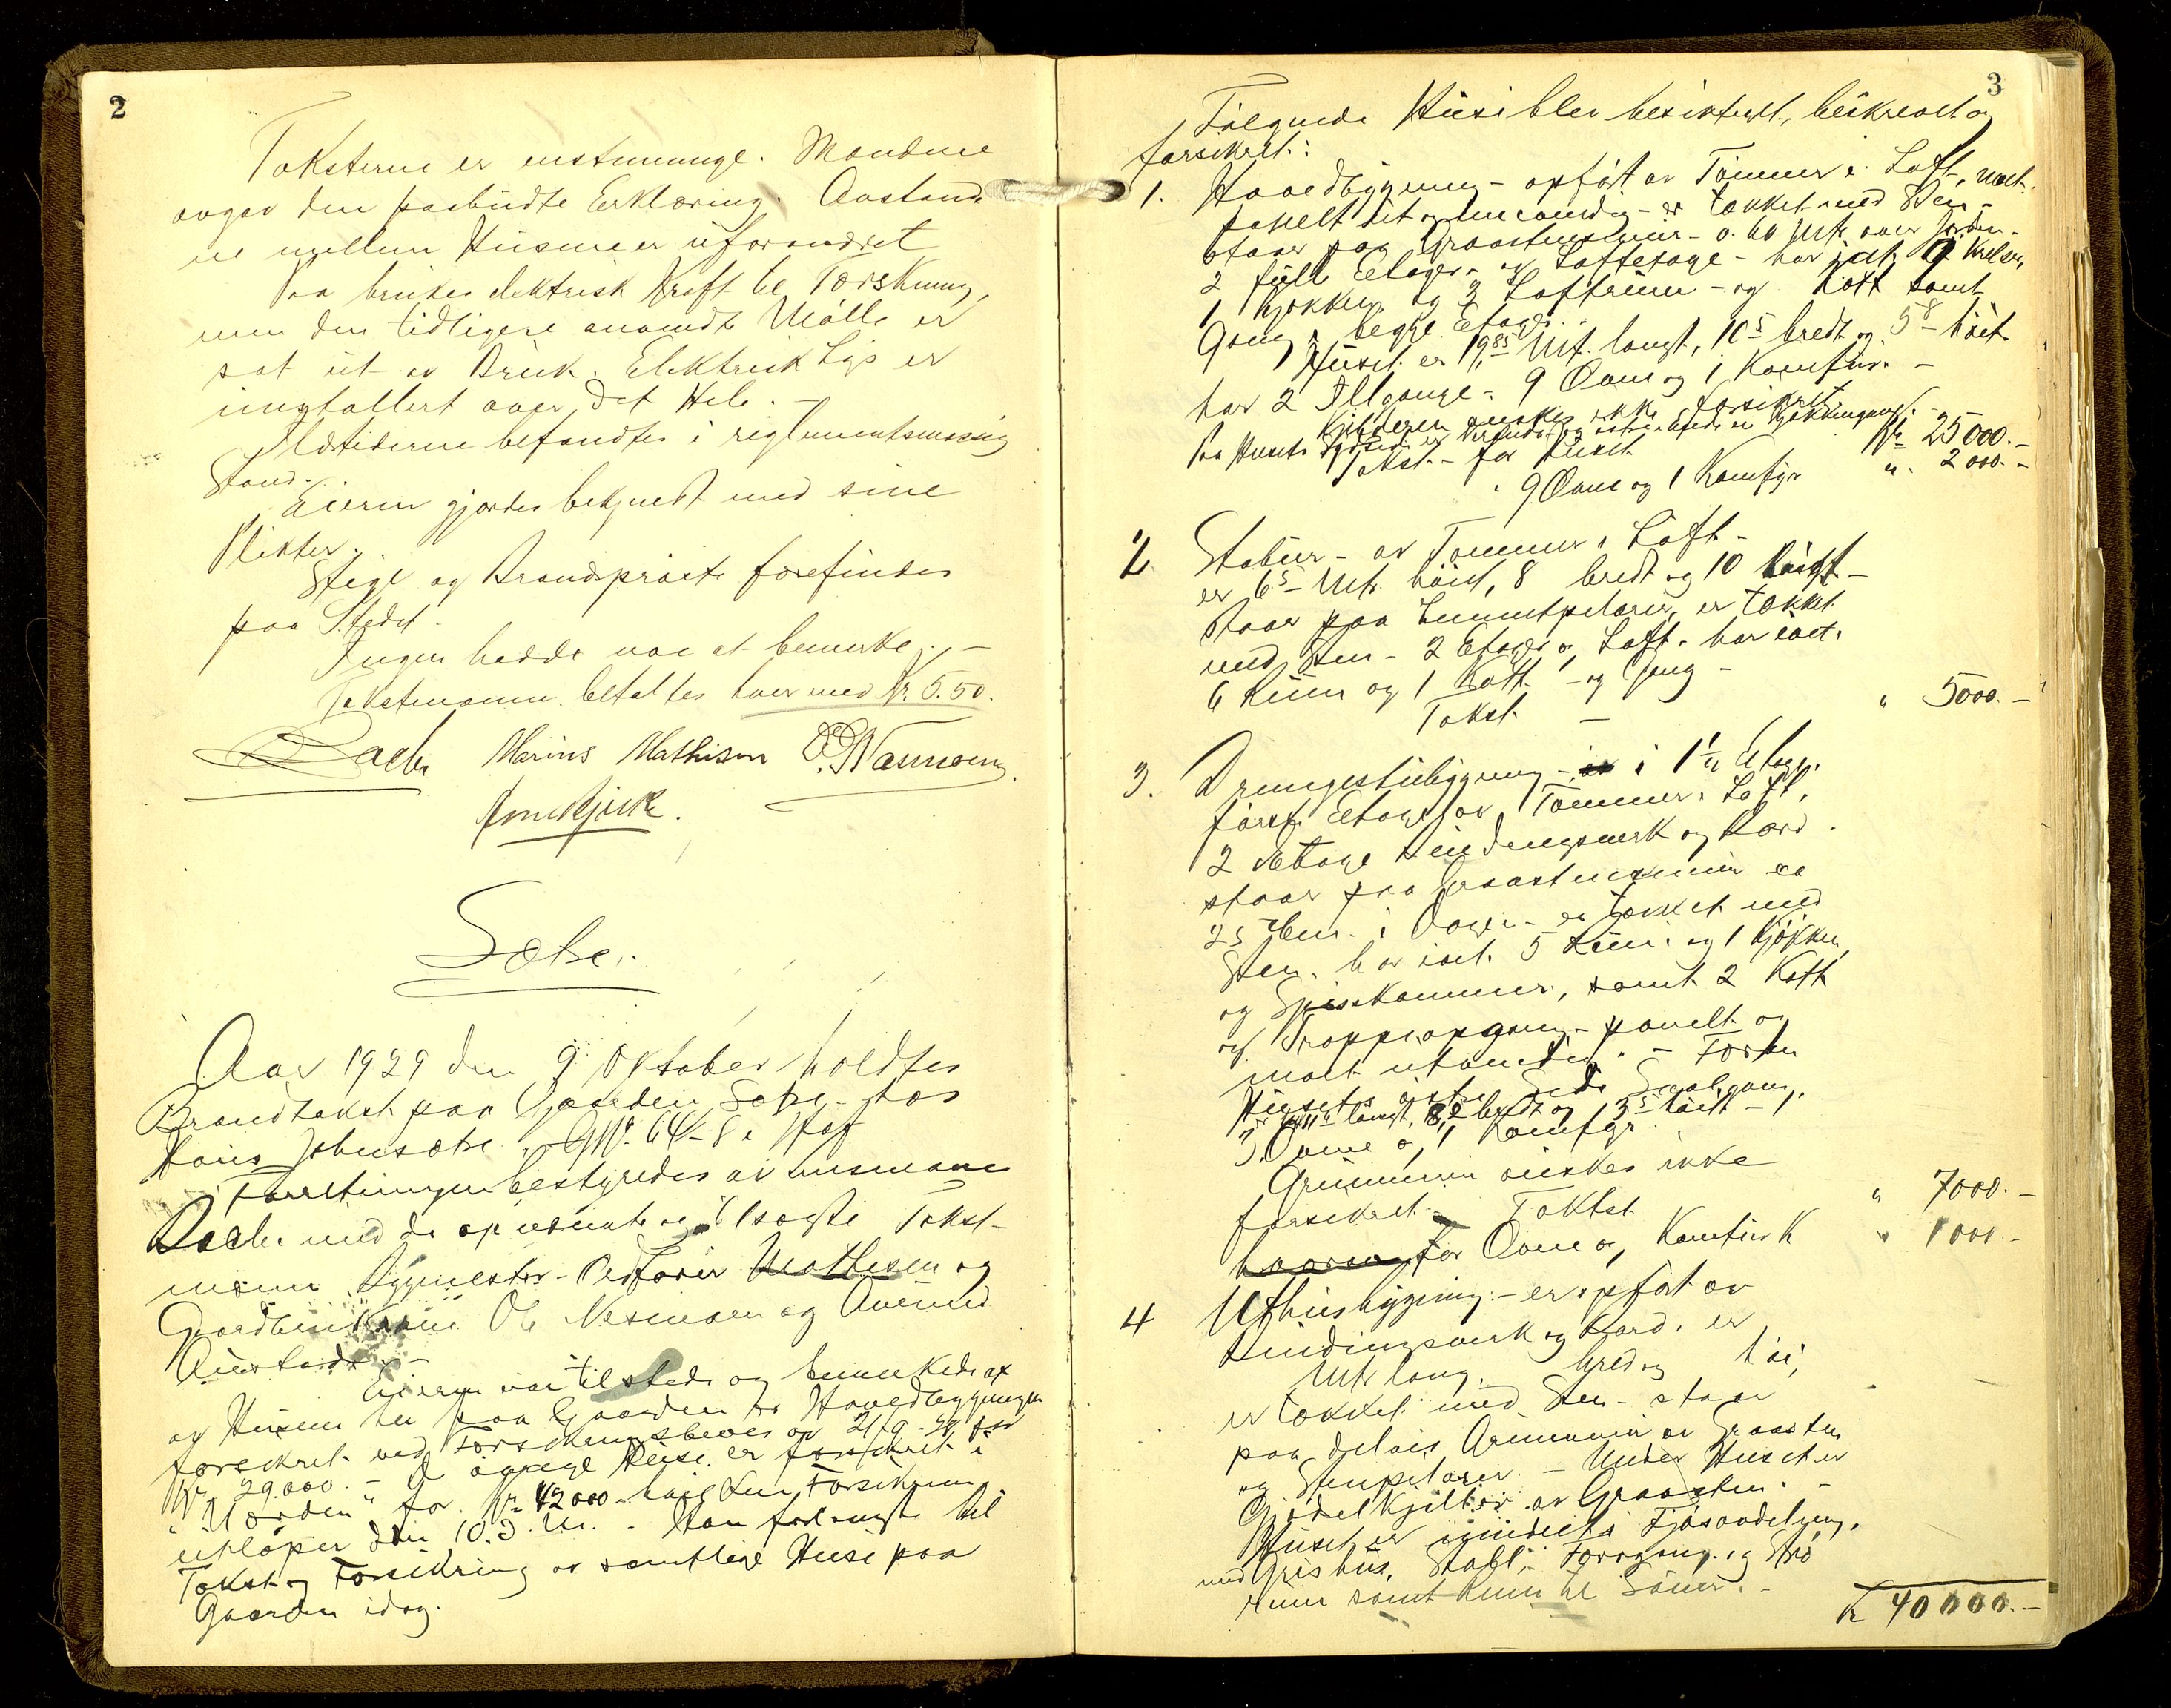 2
Taksterne er enstemmige. Mændene
avgav den paabudte Erklæring. Avstand
ne mellem Husene er uforandret
Paa brukes elektrisk Kraft til Tørskning,
men den tidligere anvendte Mølle er
sat ut av Bruk. Elektrisk Lys er
installert over det Hele. -
Ildstederne befandtes i reglementsmæssig
Stand.
Eieren gjordes bekjendt med sine
Plikter.
Stige og Brandsprøite forefindes
paa Stedet.
Ingen hadde noe at bemerke. -
Takstmænnene betaltes hver med Kr. 5.50.
Marius Mathisen
Sætre.
Aar 1929 den 9 Oktober holdtes
Brandtakst paa Gaarden Sætre hos
Hans Johnsætre GNr. 64-8 i
Forretningen bestyredes av Lensmand
med de opnævnte og tilsagte Takst-
mænn Bygmester Mathisen og
Gaardbrukerne Ole Nesmoen og Amund
Austad. -
Eieren var tilstede og bemerkede at
av Husene her paa Gaarden er Hovedbygningen
forsikret ved Forsikringsbevis av 21/9 - for
Kr 29.000. - De øvrige Huse er forsikret i
"Norden" for Kr 42000 - hvilken Forsikring
utløper den 10.3. - Han forlangte
Takst og Forsikring av samtlige Huse paa
Gaarden idag.
3
Følgende Huse blev besiktiget, beskrevet og
forsikret:
1. Hovedbygning - opført av Tømmer i Laft, malt,
panelt ut og indvendig - er tækket med Sten -
staar paa Graastensmur - 0.60 Mtr. over Jorden -
2 fulde Etager og Loftetage - har idt. 9 Værelser,
1 Kjøkken og 2 Loftrum - og Kott samt
Gang i begge Etager.
Huset er 19,85 Mtr. langt, 10,5 bredt og 5,8 høit
har 2 Ildgange - 9 Ovne og 1 Komfur. -
Kjelderen ønskes ikke forsikret.
Paa Husets Sydside er Veranda og østre Side en Kjøkkengang.
Takst - for Huset Kr 25000.-
" 9 Ovne og 1 Komfyr " 2000.-
2 Stabur - av Tømmer i Laft -
er 6,5 Mtr. høit, 8 bredt og 10 langt -
staar paa Sementpelarer, er tækket
med Sten - 2 Etager og Loft. har idt.
6 Rum og 1 Kott - og Gang -
Takst - " 5000.-
3. Drengestubygning - i 1 1/2 Etage.
første Etage av Tømmer i Laft,
2 Etage Bindingsverk og Bord.
staar paa Graastensmur ca
25 i Dagen - er tækket med
Sten. har idt. 5 Rum og 1 Kjøkken
og Spisekammer, samt 2 Kott
og Trappeopgang - panelt og
malt utvendig. - Foran
Husets østre Side Svalgang,
langt, bredt og 3,5 høit -
3 Ovne og 1 Komfyr
Grunmuren ønskes ikke
forsikret. Takst " 7000.-
for Ovne og Komfur K " 1000.-
4 Uthusbygning - er opført av
Bindingsverk og Bord. er
Mtr lang, bred og høi,
er tækket med Sten - staar
paa delvis Grunmur av Graasten
og Stenpelarer. - Under Huset er
Gjødselkjelder av Graasten. -
Huset er inndelt i Fjøsavdeling,
med Grishus, Stall, Forgang og
rum samt Rum til
Kr 40000.-